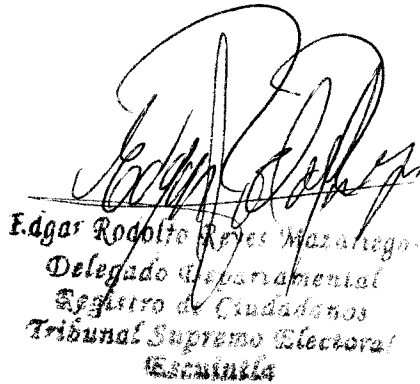 Edgar Rodolfo Reyes Mazariego
Delegado Departamental
Registro de Ciudadanos
Tribunal Supremo Electoral
Escuintla